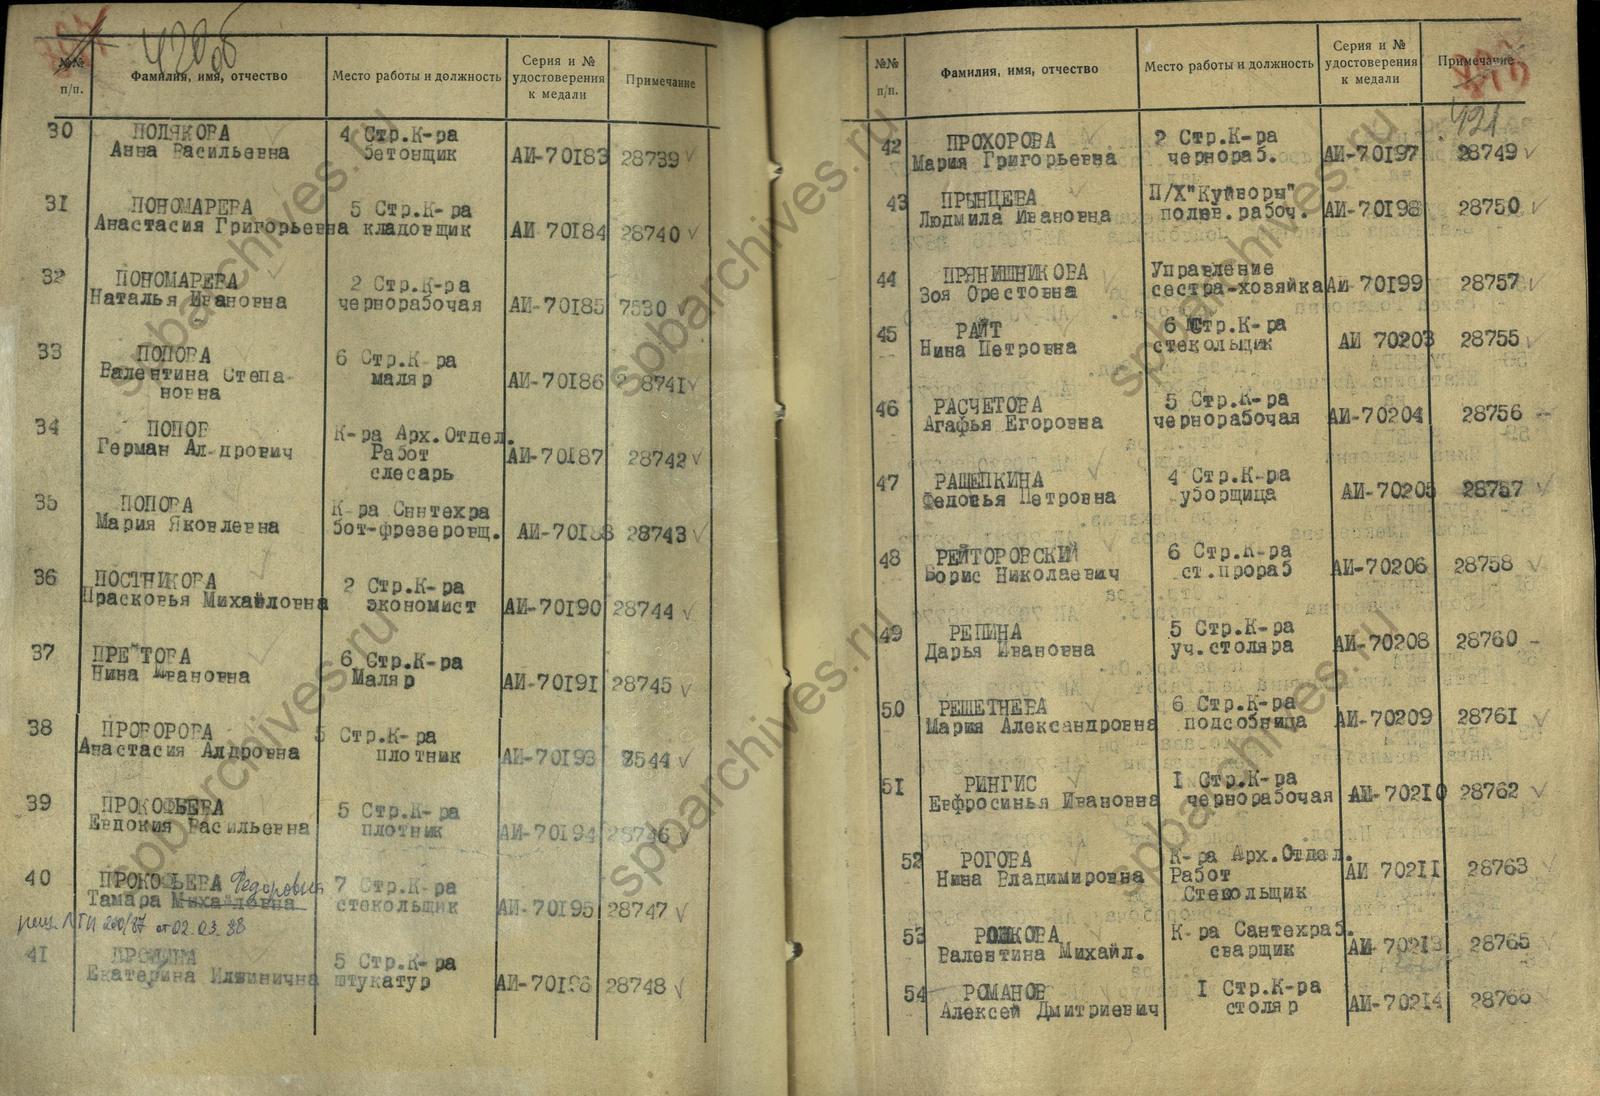 420 об
№№ п/п. Фамилия, имя, отчество Место работы и должность Серия и № удостоверения к медали Примечание
30 ПОЛЯКОВА 4 Стр.К-ра
Анна Васильевна бетонщик АИ-70183 28739
31 ПОНОМАРЕВА 5 Стр.К-ра
Анастасия Григорьевна кладовщик АИ 70184 28740
32 ПОНОМАРЕВА 2 Стр.К-ра
Наталья Ивановна чернорабочая АИ-70185 7530
33 ПОПОВА 6 Стр.К-ра
Валентина Степа- маляр АИ-70186 28741
новна
34 ПОПОВ К-ра Арх.Отдел.
Герман Ал-дрович Работ АИ-70187 28742
слесарь
35 ПОПОВА К-ра Синтехра
Мария Яковлевна бот-фрезеровщ. АИ-70188 28743
36 ПОСТНИКОВА 2 Стр.К-ра
Прасковья Михайловна экономист АИ-70190 28744
37 6 Стр.К-ра
Нина Ивановна Маляр АИ-70191 28745
38 ПРОВОРОВА 5 Стр.К-ра
Анастасия Алдровна плотник АИ-70193 8544
39 ПРОКОФЬЕВА 5 Стр.К-ра
Евдокия Васильевна плотник АИ-70194 28746
40 ПРОКОФЬЕВА Федоровна 7 Стр.К-ра
Тамара Михайловна стекольщик АИ-70195 28747
реш. ЛГИ 200/87 от 02.03.88
41 5 Стр.К-ра
Екатерина Ильинична штукатур АИ-70196 28748
421
№№ п/п. Фамилия, имя, отчество Место работы и должность Серия и № удостоверения к медали Примечание
42 ПРОХОРОВА 2 Стр.К-ра
Мария Григорьевна чернораб. АИ-70197 28749
43 ПРЫНЦЕВА П/Х"Куйворы"
Людмила Ивановна полев.рабоч. АИ-70198 28750
44 ПРЯНИШНИКОВА Управление
Зоя Орестовна сестра-хозяйка АИ-70199 28757
45 РАЙТ 6 Стр.К-ра
Нина Петровна стекольщик АИ 70203 28755
46 РАСЧЕТОВА 5 Стр.К-ра
Агафья Егоровна чернорабочая АИ-70204 28756
47 РАЩЕПКИНА 4 Стр.К-ра
Федовья Петровна уборщица АИ-70205 28757
48 РЕЙТОРОВСКИЙ 6 Стр.К-ра
Борис Николаевич ст.прораб АИ-70206 28758
49 РЕПИНА 5 Стр.К-ра
Дарья Ивановна уч.столяра АИ-70208 28760
50 РЕШЕТНЕВА 6 Стр.К-ра
Мария Александровна подсобница АИ-70209 28761
51 РИНГИС I Стр.К-ра
Евфросинья Ивановна чернорабочая АИ-70210 28762
52 РОГОВА К-ра Арх.Отдел.
Нина Владимировна Работ АИ 70211 28763
Стекольщик
53 К-ра Сантехраб.
Валентина Михайл. сварщик АИ-70213 28765
54 РОМАНОВ I Стр.К-ра
Алексей Дмитриевич столяр АИ-70214 28766
spbarchives.ru
spbarchives.ru
spbarchives.ru
spbarchives.ru
spbarchives.ru
spbarchives.ru